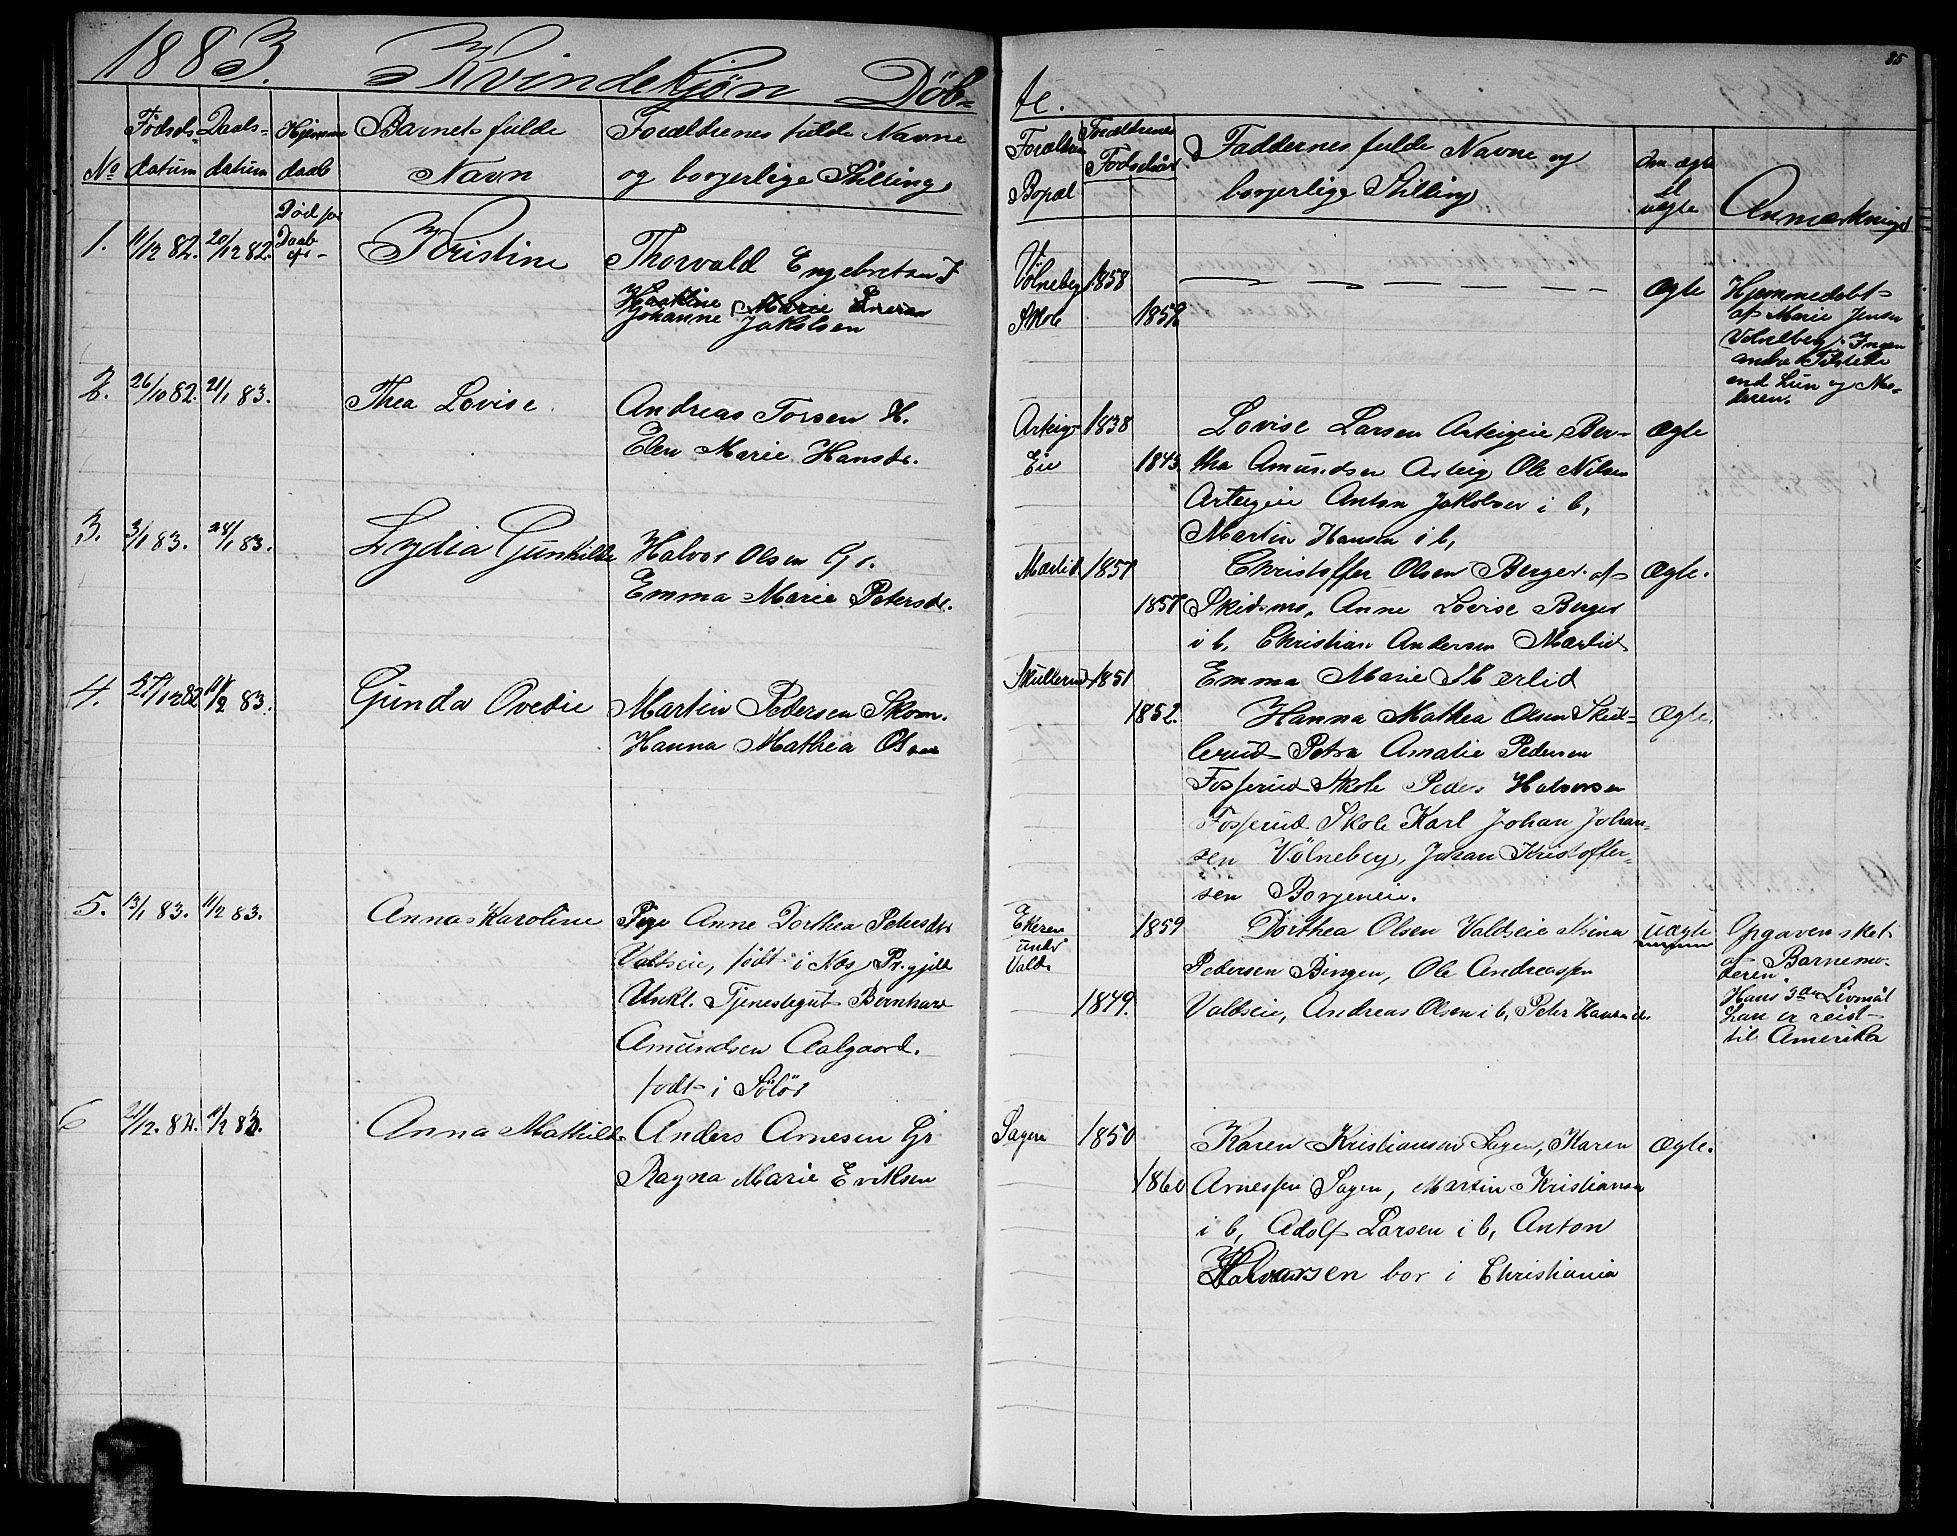 1883. Kvindekjøn Døb-
te.
85
No
Fødsels-
datum
Daabs-
datum
Hjemme
daab
Barnets fulde
Navn
Forældrenes fulde Navne
og borgerlige Stilling
Forældrenes
Bopæl
Forældrenes
Fødselsår
Faddernes fulde Navne og
borgerlige Stilling
Om ægte
el
uægte
Anmærkninger
1. 11/12 82. 20/12 82.
Død før
Daab
Kristine
Thorvald Engebretsen
Marie
Johanne Jakobsen
Volneberg
Skole
1858
1859
Ægte
Hjemmedøbt
af Marie Jensen
Volneberg. Ingen
andre Tilstede
end hun og Mo-
deren.
2. 26/10 82. 21/1 83.
Thea Lovise.
Andreas Torsen H.
Elen Marie Hansdr.
Arteig-
Eie
1838
1843.
Lovise Larsen Arteigeie, Ber-
tha Amundsen Arteig Ole Nilsen
Arteigeie Anton Jakobsen i b,
Martin Hansen i b,
Ægte
3. 3/1 83. 24/1 83.
Lydia Gunhilde
Halvor Olsen Gr.
Emma Marie Petersdr.
Mærlid
1857
1857
Christoffer Olsen Berger af
Skidsmo, Anne Lovise Berger
i b, Christian Andersen Mærlid
Emma Marie Mærlid
Ægte.
4. 27/12 82 11/2 83.
Gunda Ovedie
Martin Pedersen Skom.
Hanna Mathea Olsen
Skullerud
1851
1852.
Hanna Mathea Olsen Skul-
lerud Petra Amalie Pedersen
Fosserud Skole Peder Halvorsen
Fosserud Skole Karl Johan Johan-
sen Volneberg, Johan Kristoffer-
sen Borgeneie.
Ægte.
5. 13/1 83. 11/2 83.
Anna Karoline
Pige Anne Dorthea Petersdr
Valdseie, født i Næs Pr.gjeld
Unkl. Tjenestegut Bernhard
Amundsen Aalgaard.
født i Solør
Ekeren
under
Vald.
1859
1849.
Dorthea Olsen Valdseie Mina
Pedersen Bingen, Ole Andreassen
Valdseie, Andreas Olsen i b, Peter Hansen ib.
Uægte
Opgaven sket
af Barnemo-
deren.
Hans 3de Leiermål
han er reist
til Amerika
6 21/12. 82. 11/2 83.
Anna Mathilde
Anders Arnesen Gr
Ragna Marie Eriksen
Sagen
1850
1860
Karen Kristiansen Sagen, Karen
Arnessen Sagen, Martin Kristiansen
i b, Adolf Larsen i b, Anton
Halvorsen bor i Christiania
Ægte.